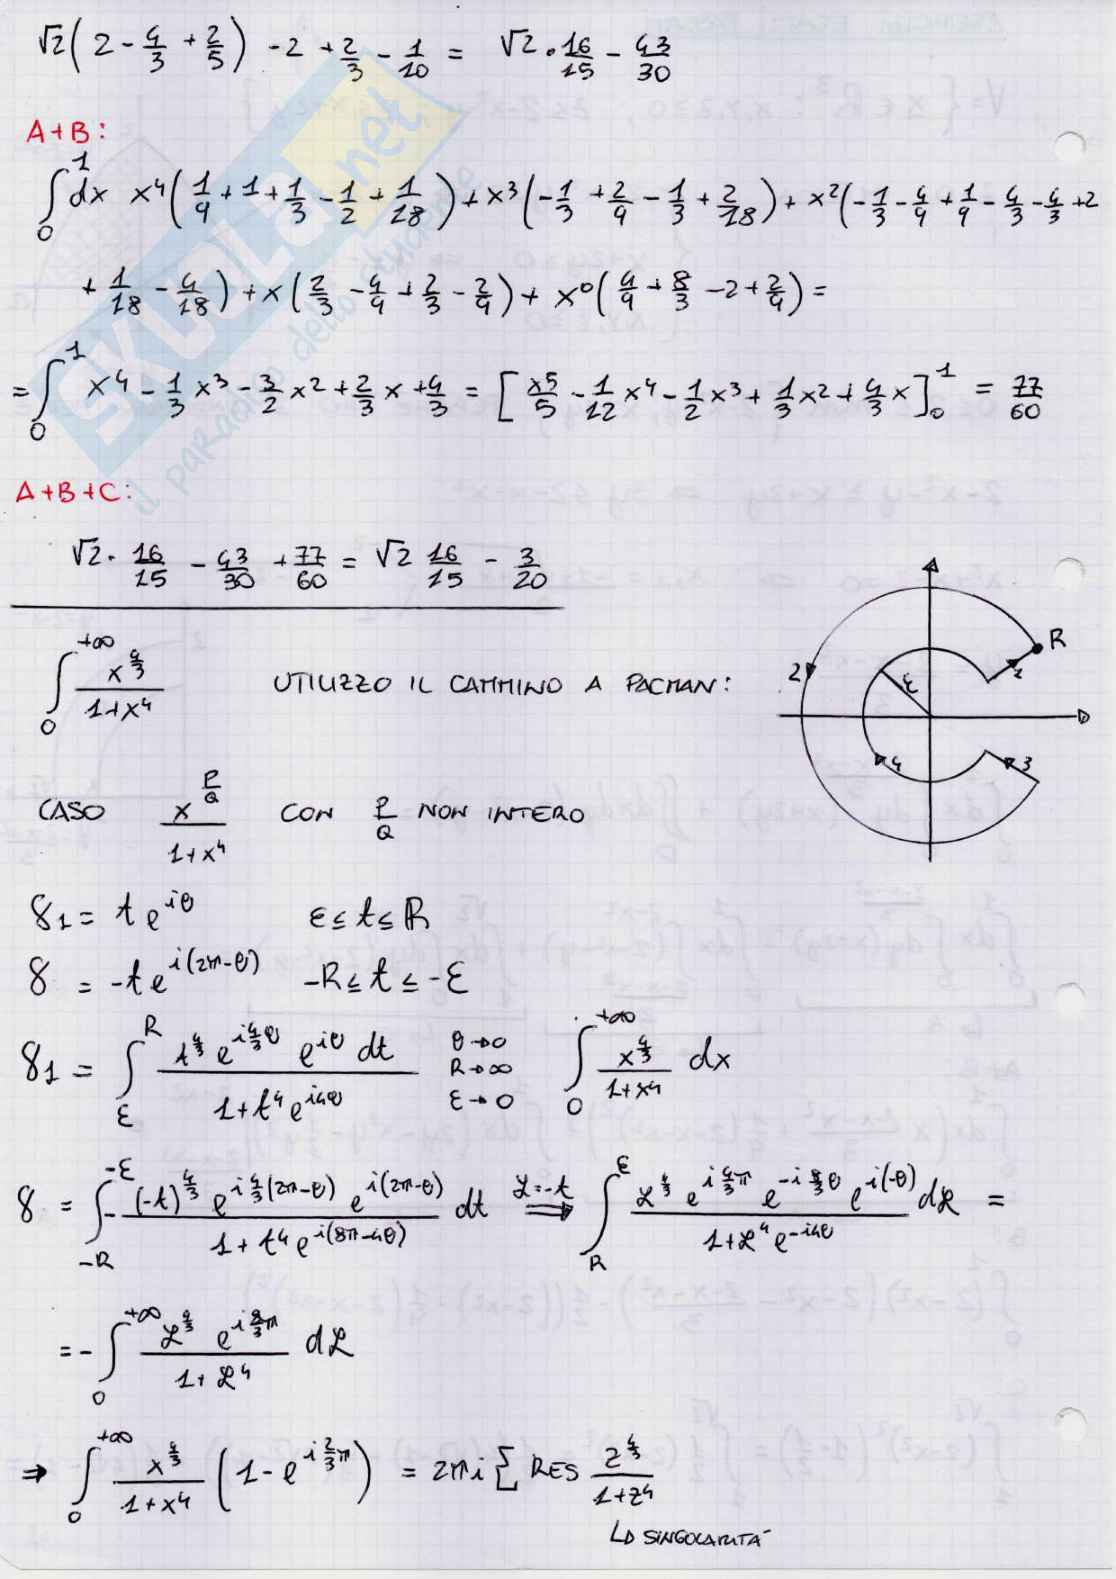 √2(2 - 4/3 + 2/5) - 2 + 2/3 - 1/10 = √2 · 16/15 - 43/30
A+B:
∫₀¹ dx x⁴(1/9 + 1 + 1/3 - 1/2 + 1/18) + x³(-1/3 + 2/9 - 1/3 + 2/18) + x²(-1/3 - 4/9 + 1/9 - 4/3 - 4/3 + 2
+ 1/18 - 4/18) + x(2/3 - 4/9 + 2/3 - 2/9) + x⁰(4/9 + 8/3 - 2 + 2/9) =
= ∫₀¹ x⁴ - 1/3 x³ - 3/2 x² + 2/3 x + 4/3 = [x5/5 - 1/12 x⁴ - 1/2 x³ + 1/3 x² + 4/3 x]₀¹ = 77/60
A+B+C:
√2 · 16/15 - 43/30 + 77/60 = √2 16/15 - 3/20
∫₀^{+∞} x^{4/3}/(1+x⁴) UTILIZZO IL CAMMINO A PACMAN:
R
1
2
ε
4
3
CASO x^{P/Q}/(1+x⁴) CON P/Q NON INTERO
γ₁ = t e^{iθ} ε ≤ t ≤ R
γ = -t e^{i(2π-θ)} -R ≤ t ≤ -ε
γ₁ = ∫_ε^R t^{4/3} e^{i4/3θ} e^{iθ} dt/(1+t⁴e^{i4θ}) θ→0 R→∞ ε→0 ∫₀^{+∞} x^{4/3}/(1+x⁴) dx
γ = ∫_{-R}^{-ε} -(-t)^{4/3} e^{i4/3(2π-θ)} e^{i(2π-θ)}/(1+t⁴e^{i(8π-4θ)}) dt ⟹ 𝓛=-t ∫_R^ε 𝓛^{4/3} e^{i4/3π} e^{-i8/3θ} e^{i(-θ)}/(1+𝓛⁴e^{-i4θ}) d𝓛 =
= -∫₀^{+∞} 𝓛^{4/3} e^{i8/3π}/(1+𝓛⁴) d𝓛
⇒ ∫₀^{+∞} x^{4/3}/(1+x⁴) (1 - e^{i2/3π}) = 2πi Σ RES z^{4/3}/(1+z⁴)
↳ SINGOLARITÀ
SKUOLA.net
il paradiso dello studente